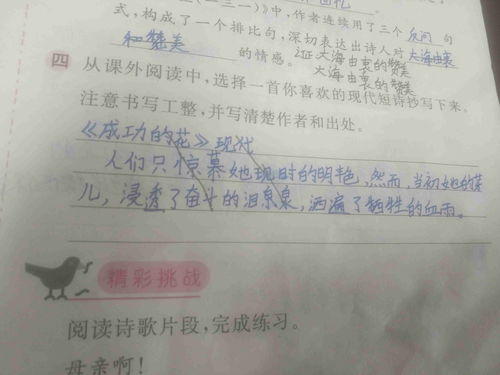 (一三一)》中,作者连续用了三个反问句
式,构成了一个排比句,深切表达出诗人对大海由衷
和赞美的情感。改正大海由衷的赞美
大海由衷的赞美
四 从课外阅读中,选择一首你喜欢的现代短诗抄写下来。
注意书写工整,并写清楚作者和出处。
《成功的花》现代
人们只惊慕她现时的明艳,然而,当初她的芽
儿,浸透了奋斗的泪泉,洒遍了牺牲的血雨。
精彩挑战
阅读诗歌片段,完成练习。
母亲啊!